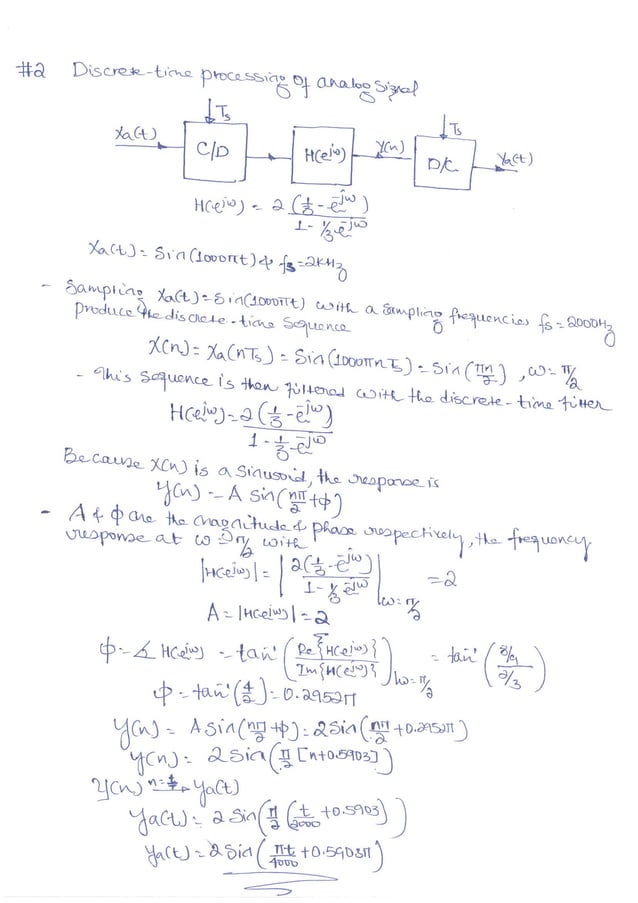 #2 Discrete-time processing of analog signal
Ts
Ts
Xa(t)
C/D
H(e^jω)
Y(n)
D/C
Ya(t)
H(e^jω) = 2 (1/3 - e^-jω) / (1 - 1/3 e^-jω)
Xa(t) = Sin(1000πt) & fs = 2kHz
- Sampling Xa(t) = Sin(1000πt) with a sampling frequencies fs = 2000Hz
Produce the discrete-time sequence
X(n) = Xa(nTs) = Sin(1000πnTs) = Sin(πn/2), ω = π/2
- This sequence is then filtered with the discrete-time filter
H(e^jω) = 2(1/3 - e^-jω) / (1 - 1/3 e^-jω)
Because X(n) is a sinusoid, the response is
Y(n) = A sin(nπ/2 + φ)
- A & φ are the magnitude & phase respectively, the frequency
response at ω = π/2 with
|H(e^jω)| = |2(1/3 - e^-jω) / (1 - 1/3 e^-jω)| ω=π/2 = 2
A = |H(e^jω)| = 2
φ = ∡ H(e^jω) = tan^-1 (Re{H(e^jω)} / Im{H(e^jω)}) ω=π/2 = tan^-1 (8/9 / 2/3)
φ = tan^-1(4/2) = 0.2952π
Y(n) = A Sin(nπ/2 + φ) = 2 Sin(nπ/2 + 0.2952π)
Y(n) = 2 Sin(π/2 [n + 0.5903])
Y(n) → Ya(t)
Ya(t) = 2 Sin(π/2 (t/2000 + 0.5903))
Ya(t) = 2 Sin(πt/4000 + 0.5903π)